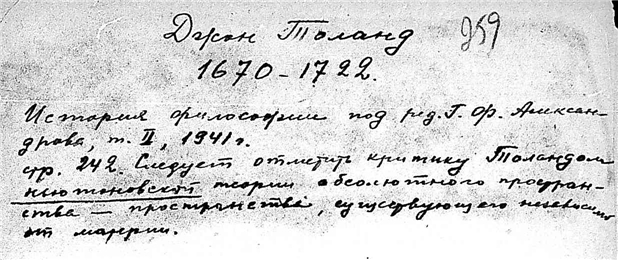 Джон Толанд 259
1670-1722.
История философии под ред. Г. Ф. Алексан-
дрова, т. II, 1941 г.
стр. 242. Следует отметить критику Толандом
ньютоновской теории абсолютного простран-
ства — пространства, существующего независимо
от материи.